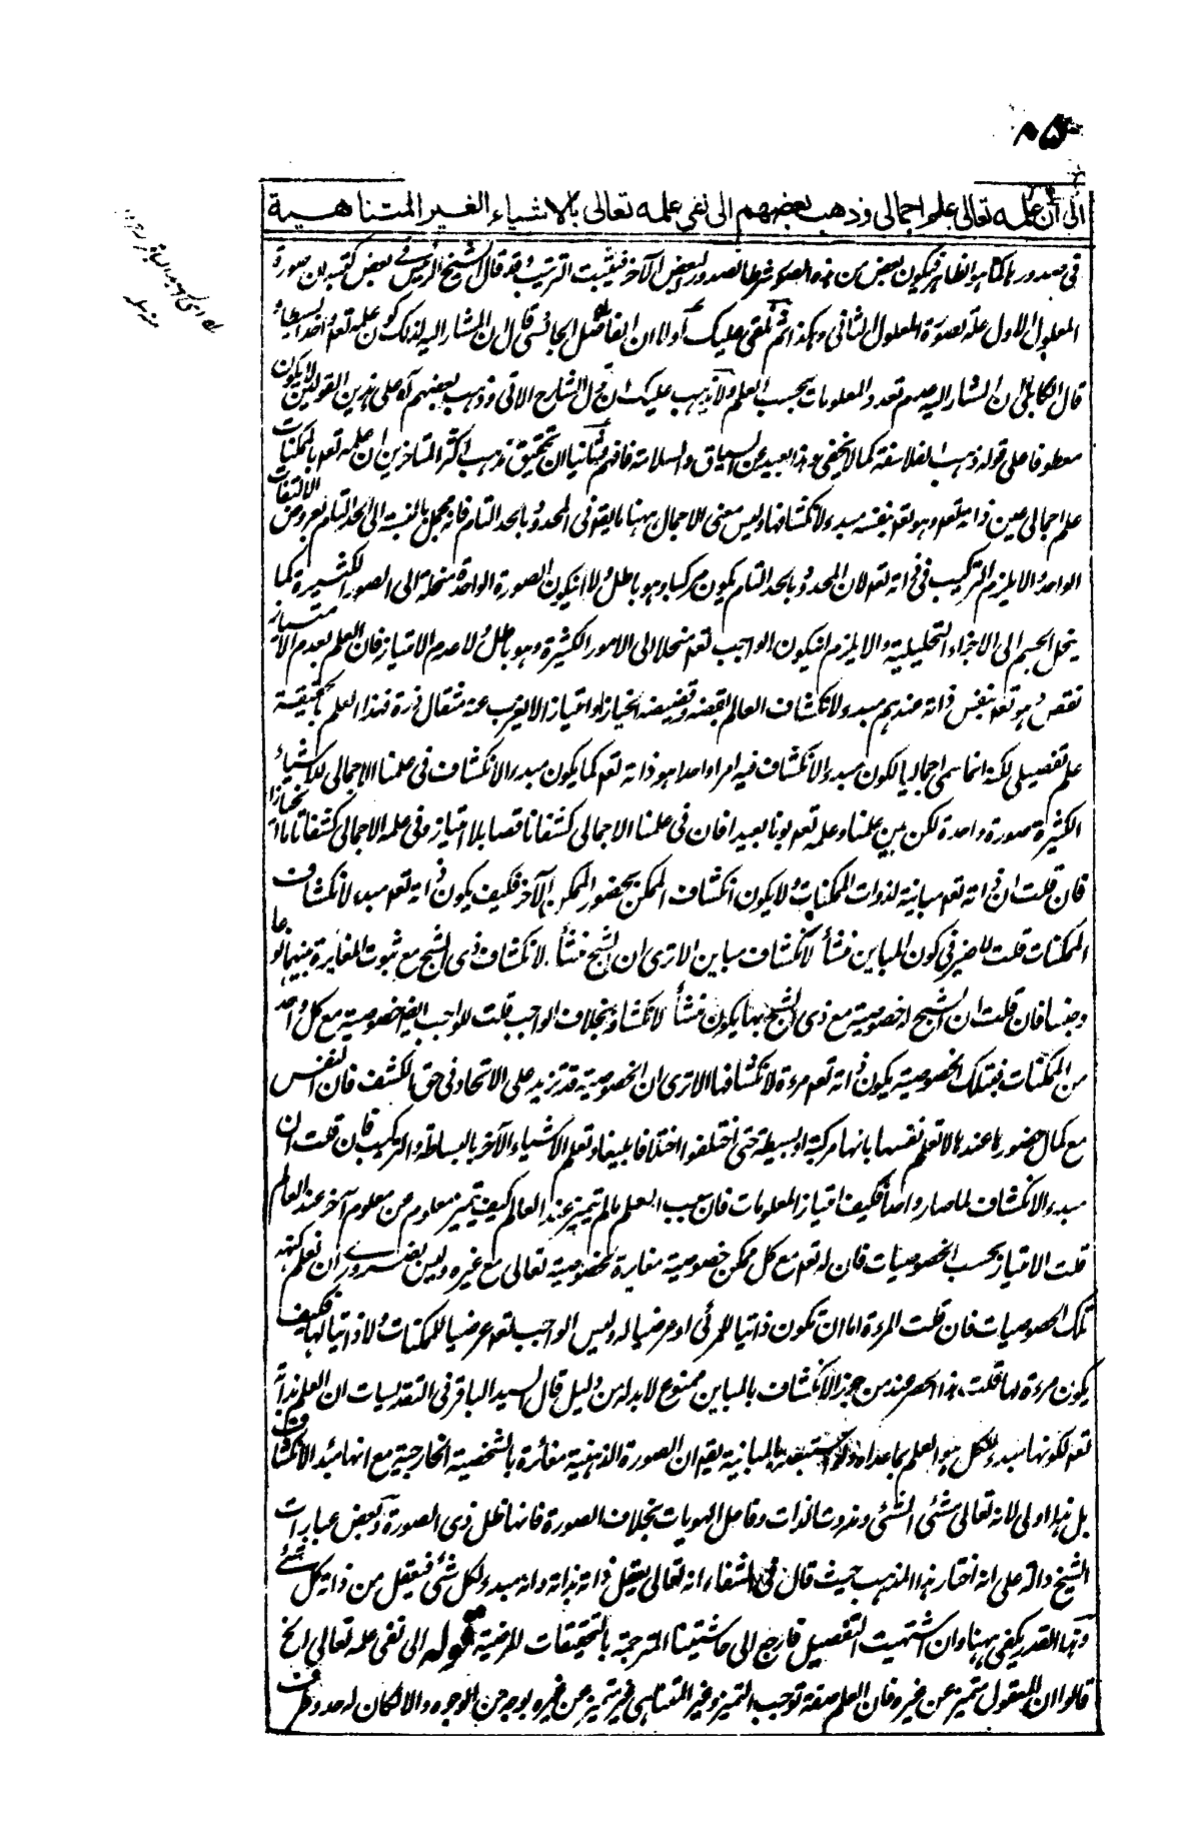 ٨٥
الى أن علمه تعالى علم اجمالى وذهب بعضهم الى نفى علمه تعالى بالاشياء الغير المتناهية
فى صدورها كما هو الظاهر فيكون بعض من هذه الصور شرطا لصدور البعض الآخر فيثبت الترتيب وقد قال الشيخ الرئيس فى بعض كتبه ان صورة
المعلول الاول علة لصورة المعلول الثانى وهكذا ثم بقى عليك أولا ان الفاضل قال ان المشار اليه لذلك كون علمه تعم احدا بسيطا
قال الكابلى ان المشار اليه عدم تعدد المعلومات بحسب العلم ولا يذهب عليك ان قول الشارح الاتى وذهب بعضهم آه على هذين القولين لا يكون
معطوفا على قوله ذهب الفلاسفة كما لا يخفى وهذا بعيد عن السياق والسلاسة فافهم وثانيا ان تحقيق مذهب اكثر المتاخرين ان علمه تعم بالممكنات
علم اجمالى عين ذاته تعم وهو تعم بنفسه مبدء لانكشافها وليس معنى الاجمال ههنا ما يقع فى المحدود بالحد التام فانه مجمل بالنسبة الى الحد التام لعروض الالتفات
الواحد والا يلزم التركيب فى ذاته تعم لان المحدود بالحد التام يكون مركبا وهو باطل ولا ان يكون الصورة الواحدة منحلة الى الصور الكثيرة كما
ينحل الجسم الى الاجزاء التحليلية والا يلزم ان يكون الواجب تعم منحلا الى الامور الكثيرة وهو باطل ولا عدم الامتياز فان العلم بعدم الامتياز
نقص وهو تعم بنفس ذاته عندهم مبدء لانكشاف العالم بقضه وقضيضه انحيازا وامتيازا لا يعزب عنه مثقال ذرة فهذا العلم بحقيقته
علم تفصيلى لكنه انما سمى اجماليا لكون مبدء الانكشاف فيه امرا واحدا هو ذاته تعم كما يكون مبدء الانكشاف فى علمنا الاجمالى للاشياء
الكثيرة صورة واحدة لكن بين علمنا وعلمه تعم بونا بعيدا فان فى علمنا الاجمالى كشفا ناقصا بلا امتياز وفى علمه الاجمالى كشفا تاما انحيازا
فان قلت ان ذاته تعم مباينة لذوات الممكنات ولا يكون انكشاف الممكن بحضور الممكن الآخر فكيف يكون ذاته تعم مبدء لانكشاف
الممكنات قلت لا ضير فى كون المباين منشأ لانكشاف مباين الا ترى ان الشبح منشأ لانكشاف ذى الشبح مع ثبوت المغايرة بينهما نوعا
وجنسا فان قلت ان الشبح له خصوصية مع ذى الشبح بها يكون منشأ لانكشافه بخلاف الواجب قلت للواجب ايضا خصوصية مع كل واحد
من الممكنات فبتلك الخصوصية يكون ذاته تعم مرءة لانكشافها الا ترى ان الخصوصية قد تزيد على الاتحاد فى حق الكشف فان النفس
مع كمال حضورها عندها لا تعلم نفسها بانها مركبة او بسيطة حتى اختلفوا اختلافا بليغا وتعلم الاشياء الآخر بالبساطة والتركيب فان قلت ان
مبدء الانكشاف لما صار واحدا فكيف امتياز المعلومات فان سبب العلم ما لم يتميز عند العالم كيف يتميز معلوم عن معلوم آخر عند العالم
قلت الامتياز بحسب الخصوصيات فان له تعم مع كل ممكن خصوصية مغايرة لخصوصيته تعالى مع غيره وليس بضرورى ان نعلم كنه
تلك الخصوصيات فان قلت المرءة اما ان تكون ذاتيا للمرئى او عرضيا له وليس الواجب تعم عرضيا للممكنات ولا ذاتيا لها فكيف
يكون مرءة لها قلت هذا الحصر عند من جوز الانكشاف بالمباين ممنوع لا بد له من دليل قال السيد الباقر فى التقديسات ان العلم بذاته
تعم لكونها مبدء للكل هو العلم بما عداه ولو استبعد بالمباينة يقع ان الصورة الذهنية مغائرة بالشخصية الخارجية مع انها مبدء الانكشاف
بل هذا اولى لانه تعالى مشئى الشئى ومذوت الذات وفاعل الهويات بخلاف الصورة فانها ظل ذى الصورة وبعض عبارات
الشيخ دالة على انه اختار هذا المذهب حيث قال فى الشفاء انه تعالى يعقل ذاته بذاته وانه مبدء لكل شئ فيعقل من ذاته كل شئ
وهذا القدر يكفى ههنا وان اشتهيت التفصيل فارجع الى حاشيتنا المترجمة بالتحقيقات المرضية قوله الى نفى علمه تعالى الخ
قالوا ان المعقول متميز عن غيره فان العلم صفة توجب التميز وغير المتناهى غير متميز عن غيره بوجه من الوجوه والا لكان له حد وطرف